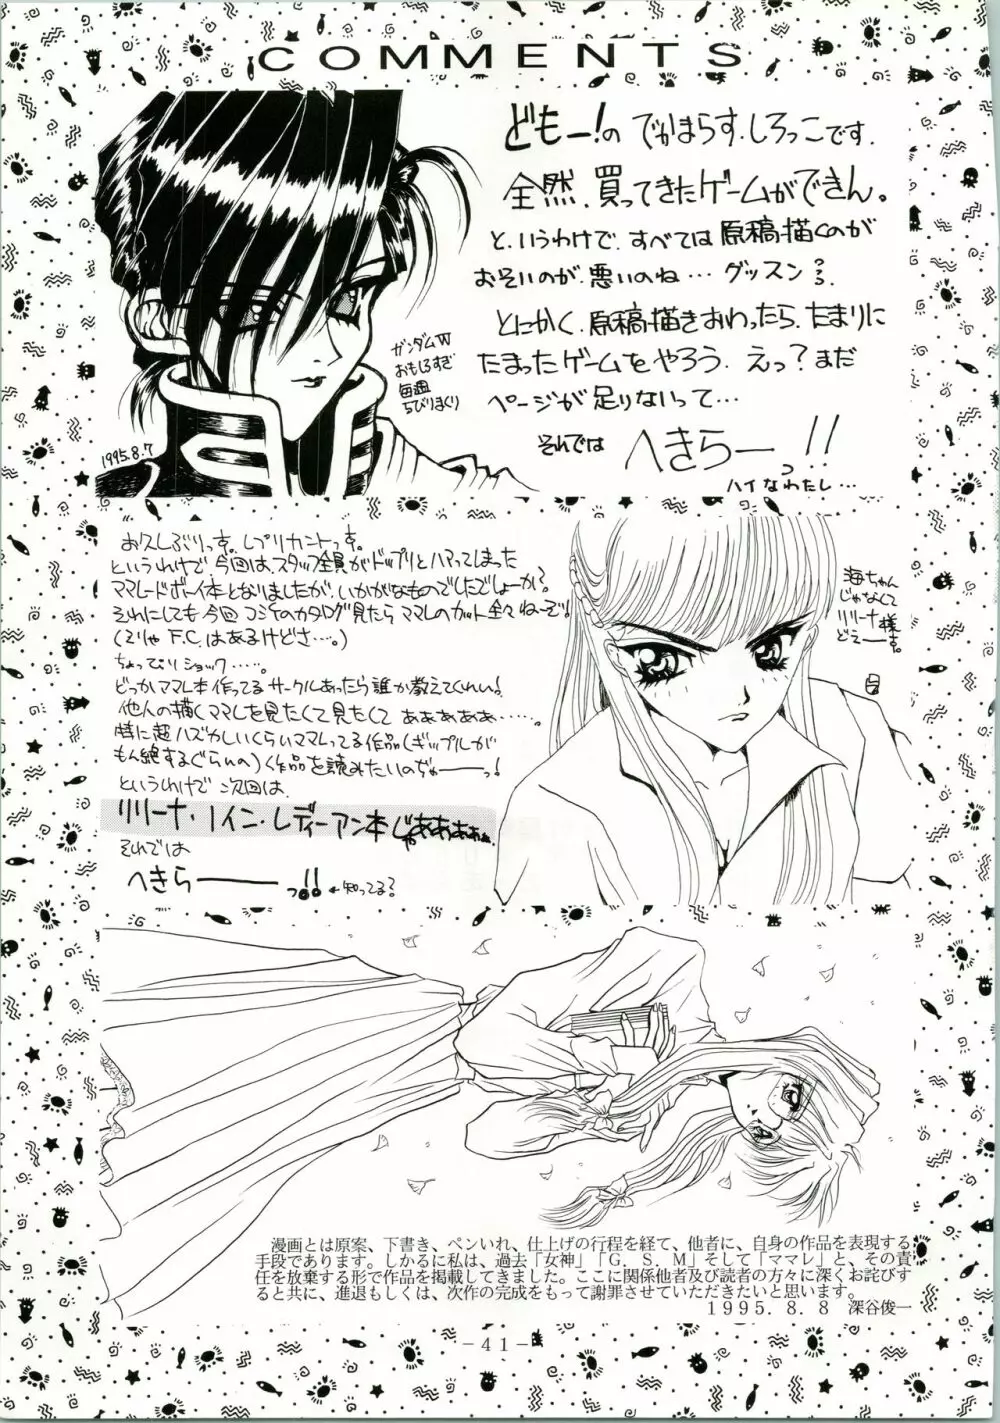 COMMENTS
どもー!の でかまらす.しろっこです.
全然.買ってきたゲームができん。
と.いうわけで.すべては原稿描くのが
おそいのが.悪いのね… グッスン
とにかく.原稿描きおわったら.たまりに
たまったゲームをやろう. えっ?まだ
ページが足りないって…
それでは へきらーっ!!
ハイなわたし…
ガンダムW
おもしろすぎ
毎週
ちびりまくり
1995.8.7
お久しぶりっす。レプリカントっす。
というわけで.今回は.スタッフ全員がドップリとハマってしまった
ママレードボーイ本となりましたが.いかがなものでしたでしょーか?
それにしても今回コミケのカタログ見たらママレのカット全々ねーぞ!
(そりゃF.C.はあるけどさ…。)
ちょっぴりショック……。
どっかママレ本作ってるサークルあったら誰か教えてくれい!
他人の描くママレを見たくて見たくて ああああああ……。
特に超ハズかしいくらいママレってる作品(ギップルが
もん絶するぐらいの)く作品を読みたいのぢゃーーっ!
というわけで次回は.
リリーナ・ノイン・レディーアン本じゃああああぁ.
それでは
へきらーーーっ!! ←知ってる?
海ちゃん
じゃなくて
リリーナ様
どえーす。
漫画とは原案、下書き、ペンいれ、仕上げの行程を経て、他者に、自身の作品を表現する
手段であります。しかるに私は、過去「女神」「G．S．M」そして「ママレ」と、その責
任を放棄する形で作品を掲載してきました。ここに関係他者及び読者の方々に深くお詫びす
ると共に、進退もしくは、次作の完成をもって謝罪させていただきたいと思います。
1995．8．8　深谷俊一
－41－